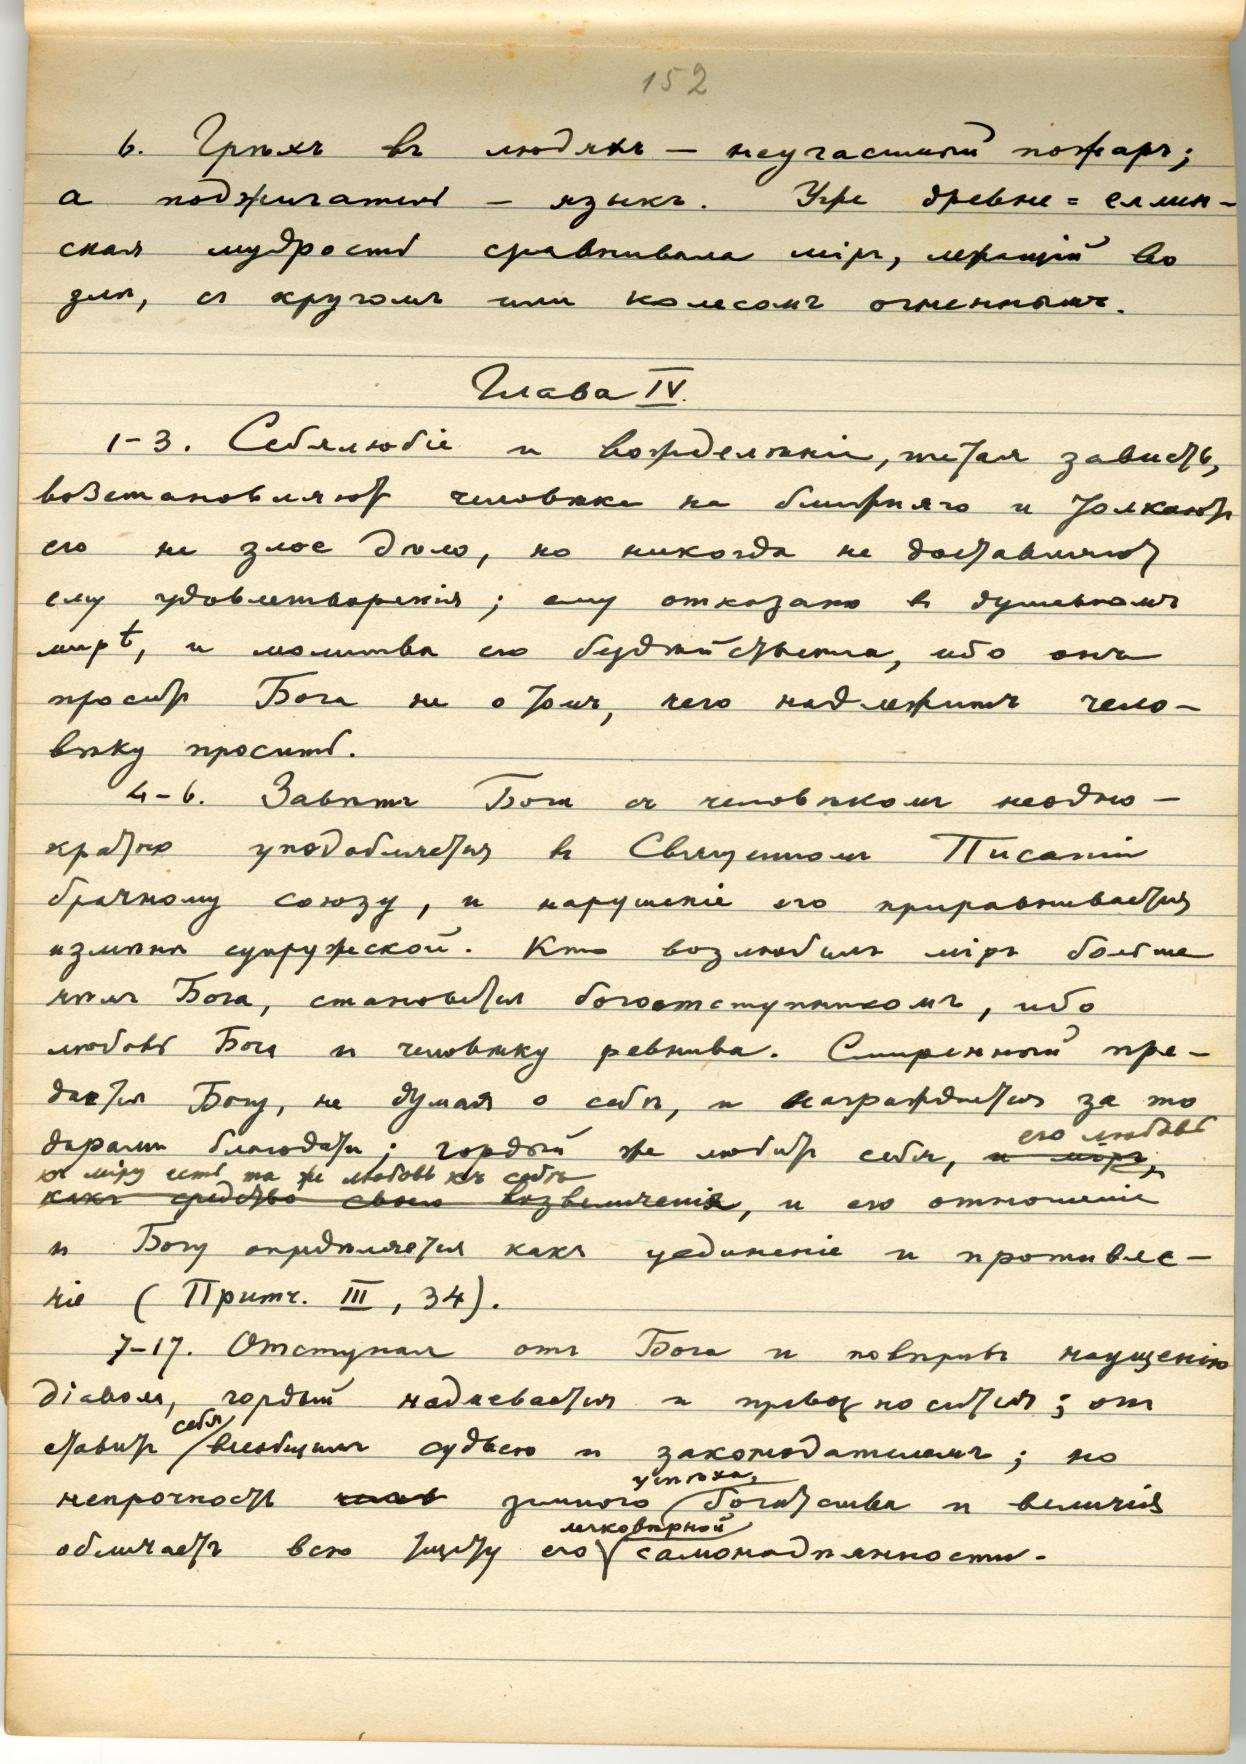 152
6. Грѣхъ въ людяхъ — неугасимый пожаръ;
а поджигатель — языкъ. Уже древне = еллин-
ская мудрость сравнивала міръ, лежащій во
злѣ, съ кругомъ или колесомъ огненнымъ.
Глава IV.
1-3. Себялюбіе и вожделѣніе, питая зависть,
возстановляютъ человѣка на ближняго и толкаютъ
его на злое дѣло, но никогда не доставляютъ
ему удовлетворенія; ему отказано въ душевномъ
мирѣ, и молитва его бездѣйственна, ибо онъ
проситъ Бога не о томъ, чего надлежитъ чело-
вѣку просить.
4-6. Завѣтъ Бога съ человѣкомъ неодно-
кратно уподобляется въ Священномъ Писаніи
брачному союзу, и нарушеніе его приравнивается
измѣнѣ супружеской. Кто возлюбилъ міръ больше
чѣмъ Бога, становится богоотступникомъ, ибо
любовь Бога къ человѣку ревнива. Смиренный пре-
дается Богу, не думая о себѣ, и награждается за то
дарами благодати; гордый же любитъ себя, и міръ, его любовь
къ міру есть та же любовь къ себѣ
какъ средство своего возвеличенія, и его отношеніе
къ Богу опредѣляется какъ уединеніе и противле-
ніе (Притч. III, 34).
7-17. Отступая отъ Бога и повѣривъ наущенію
діавола, гордый надмевается и превозносится; онъ
ставитъ себя всеобщимъ судьею и законодателемъ; но
непрочность земного успѣха, богатства и величія
обличаетъ всю тщету его легковѣрной самонадѣянности.